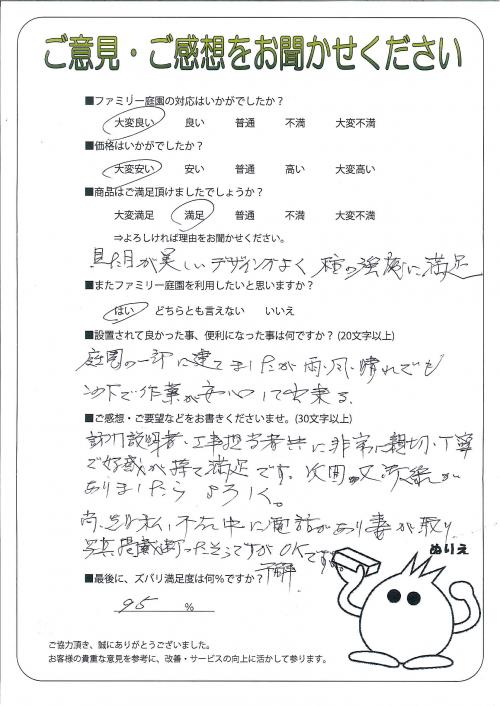 ご意見・ご感想をお聞かせください
■ファミリー庭園の対応はいかがでしたか？
大変良い 良い 普通 不満 大変不満
■価格はいかがでしたか？
大変安い 安い 普通 高い 大変高い
■商品はご満足頂けましたでしょうか？
大変満足 満足 普通 不満 大変不満
⇒よろしければ理由をお聞かせください。
見た目が美しいデザインがよく 柱の強度に満足
■またファミリー庭園を利用したいと思いますか？
はい どちらとも言えない いいえ
■設置されて良かった事、便利になった事は何ですか？(20文字以上)
庭園の一部に建てましたが雨、風、晴れでも
の下で作業が安心して出来る。
■ご感想・ご要望などをお書きくださいませ。(30文字以上)
訪問説明者・工事担当者共に非常に親切、丁寧
で好感が持て満足です。次回又
ありましたらよろしく。
尚、私、不在中に電話があり妻が取り
写真掲載断ったそうですがOKです。
■最後に、ズバリ満足度は何%ですか？
95 %
ぬりえ
ご協力頂き、誠にありがとうございました。
お客様の貴重な意見を参考に、改善・サービスの向上に活かして参ります。